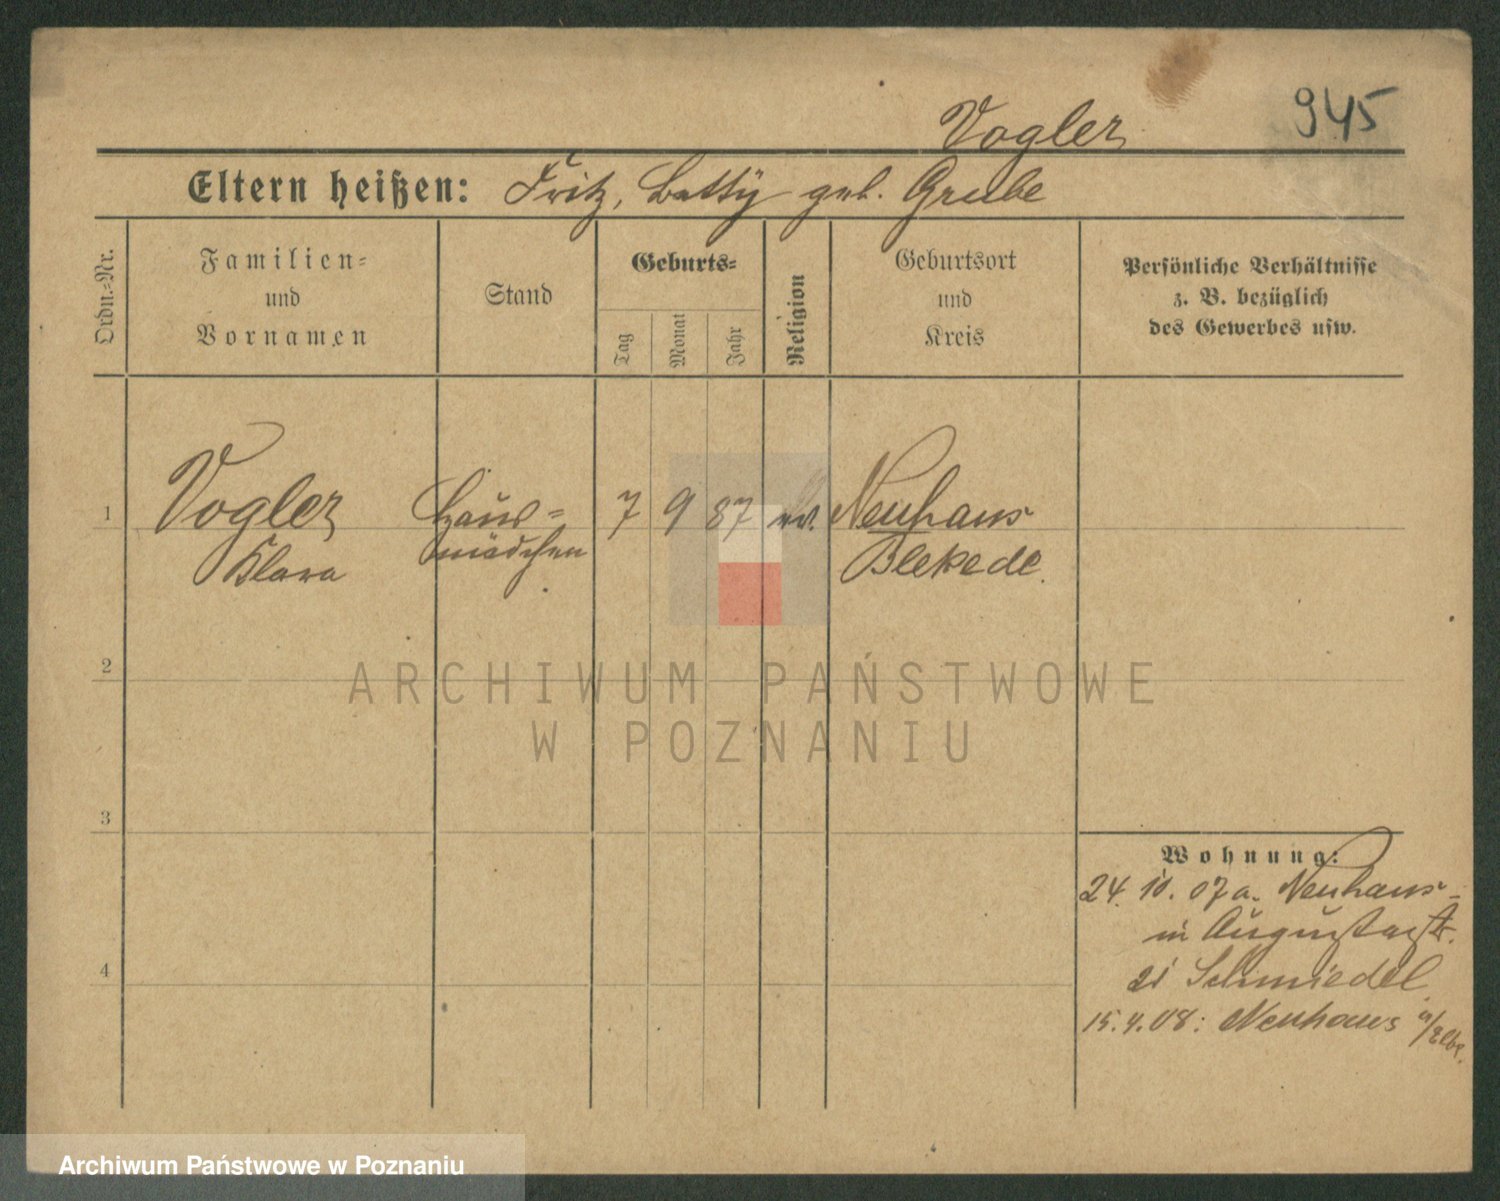 945
Vogler
Eltern heißen: Fritz, Betty geb. Grube
Ordn.-Nr.
Familien-
und
Vornamen
Stand
Geburts-
Tag
Monat
Jahr
Religion
Geburtsort
und
Kreis
Persönliche Verhältnisse
z. B. bezüglich
des Gewerbes usw.
1
Vogler
Klara
Haus-
mädchen
7
9
87
ev.
Neuhaus
Blekede.
2
3
4
Wohnung:
24. 10. 07 a. Neuhaus-
in Augustastr.
21 Schmiedel
15. 4. 08: Neuhaus a/Elbe.
ARCHIWUM PAŃSTWOWE
W POZNANIU
Archiwum Państwowe w Poznaniu